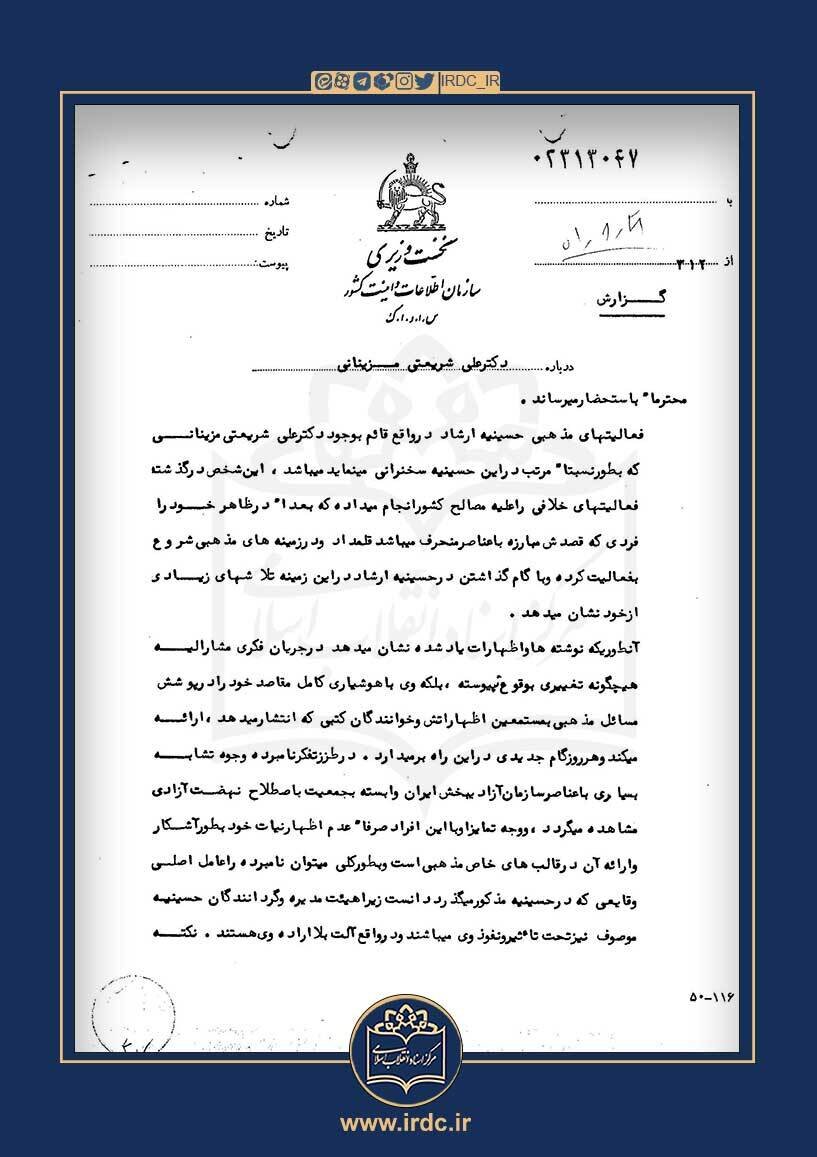 IRDC_IR
۰۲۳۱۳۰۴۷
با
شماره
از ۳۱۲
تاریخ
پیوست:
نخست وزیری
سازمان اطلاعات و امنیت کشور
س.ا.و.ا.ک
گـــزارش
درباره دکترعلی شریعتی مـزینانی
محترما" باستحضارمیرساند .
فعالیتهای مذهبی حسینیه ارشاد درواقع قائم بوجود دکترعلی شریعتی مزینانـــی
که بطورنسبتا" مرتب دراین حسینیه سخنرانی مینماید میباشد ، این شخص درگذشته
فعالیتهای خلافی راعلیه مصالح کشورانجام میداده که بعدا" درظاهر خـــود را
فردی که قصدش مبارزه باعناصرمنحرف میباشد قلمداد ودرزمینه های مذهبی شروع
بفعالیت کرده وبا گام گذاشتن درحسینیه ارشاد دراین زمینه تلاشهای زیـــادی
ازخود نشان میدهد .
آنطوریکه نوشته هاواظهارات یادشده نشان میدهد درجریان فکری مشارالیـــه
هیچگونه تغییری بوقوع نپیوسته ، بلکه وی باهوشیاری کامل مقاصد خودرا درپوشش
مسائل مذهبی بمستمعین اظهاراتش وخوانندگان کتبی که انتشارمیدهد ، ارائـــه
میکند وهرروزگام جدیدی دراین راه برمیدارد . درطرزتفکرنامبرده وجوه تشابـــه
بسیاری باعناصرسازمان آزادیبخش ایران وابسته بجمعیت باصطلاح نهضت آزادی
مشاهده میگردد ، ووجه تمایزاوبااین افراد صرفا" عدم اظهارنیات خود بطورآشـکار
وارائه آن درقالب های خاص مذهبی است وبطورکلی میتوان نامبرده راعامل اصلـی
وقایعی که درحسینیه مذکورمیگذرد دانست زیراهیئت مدیره وگردانندگان حسینیـه
موصوف نیزتحت تاثیرونفوذ وی میباشند ودرواقع آلت بلااراده وی هستند . نکتـــه
۵۰-۱۱۶
مرکز اسناد انقلاب اسلامی
www.irdc.ir